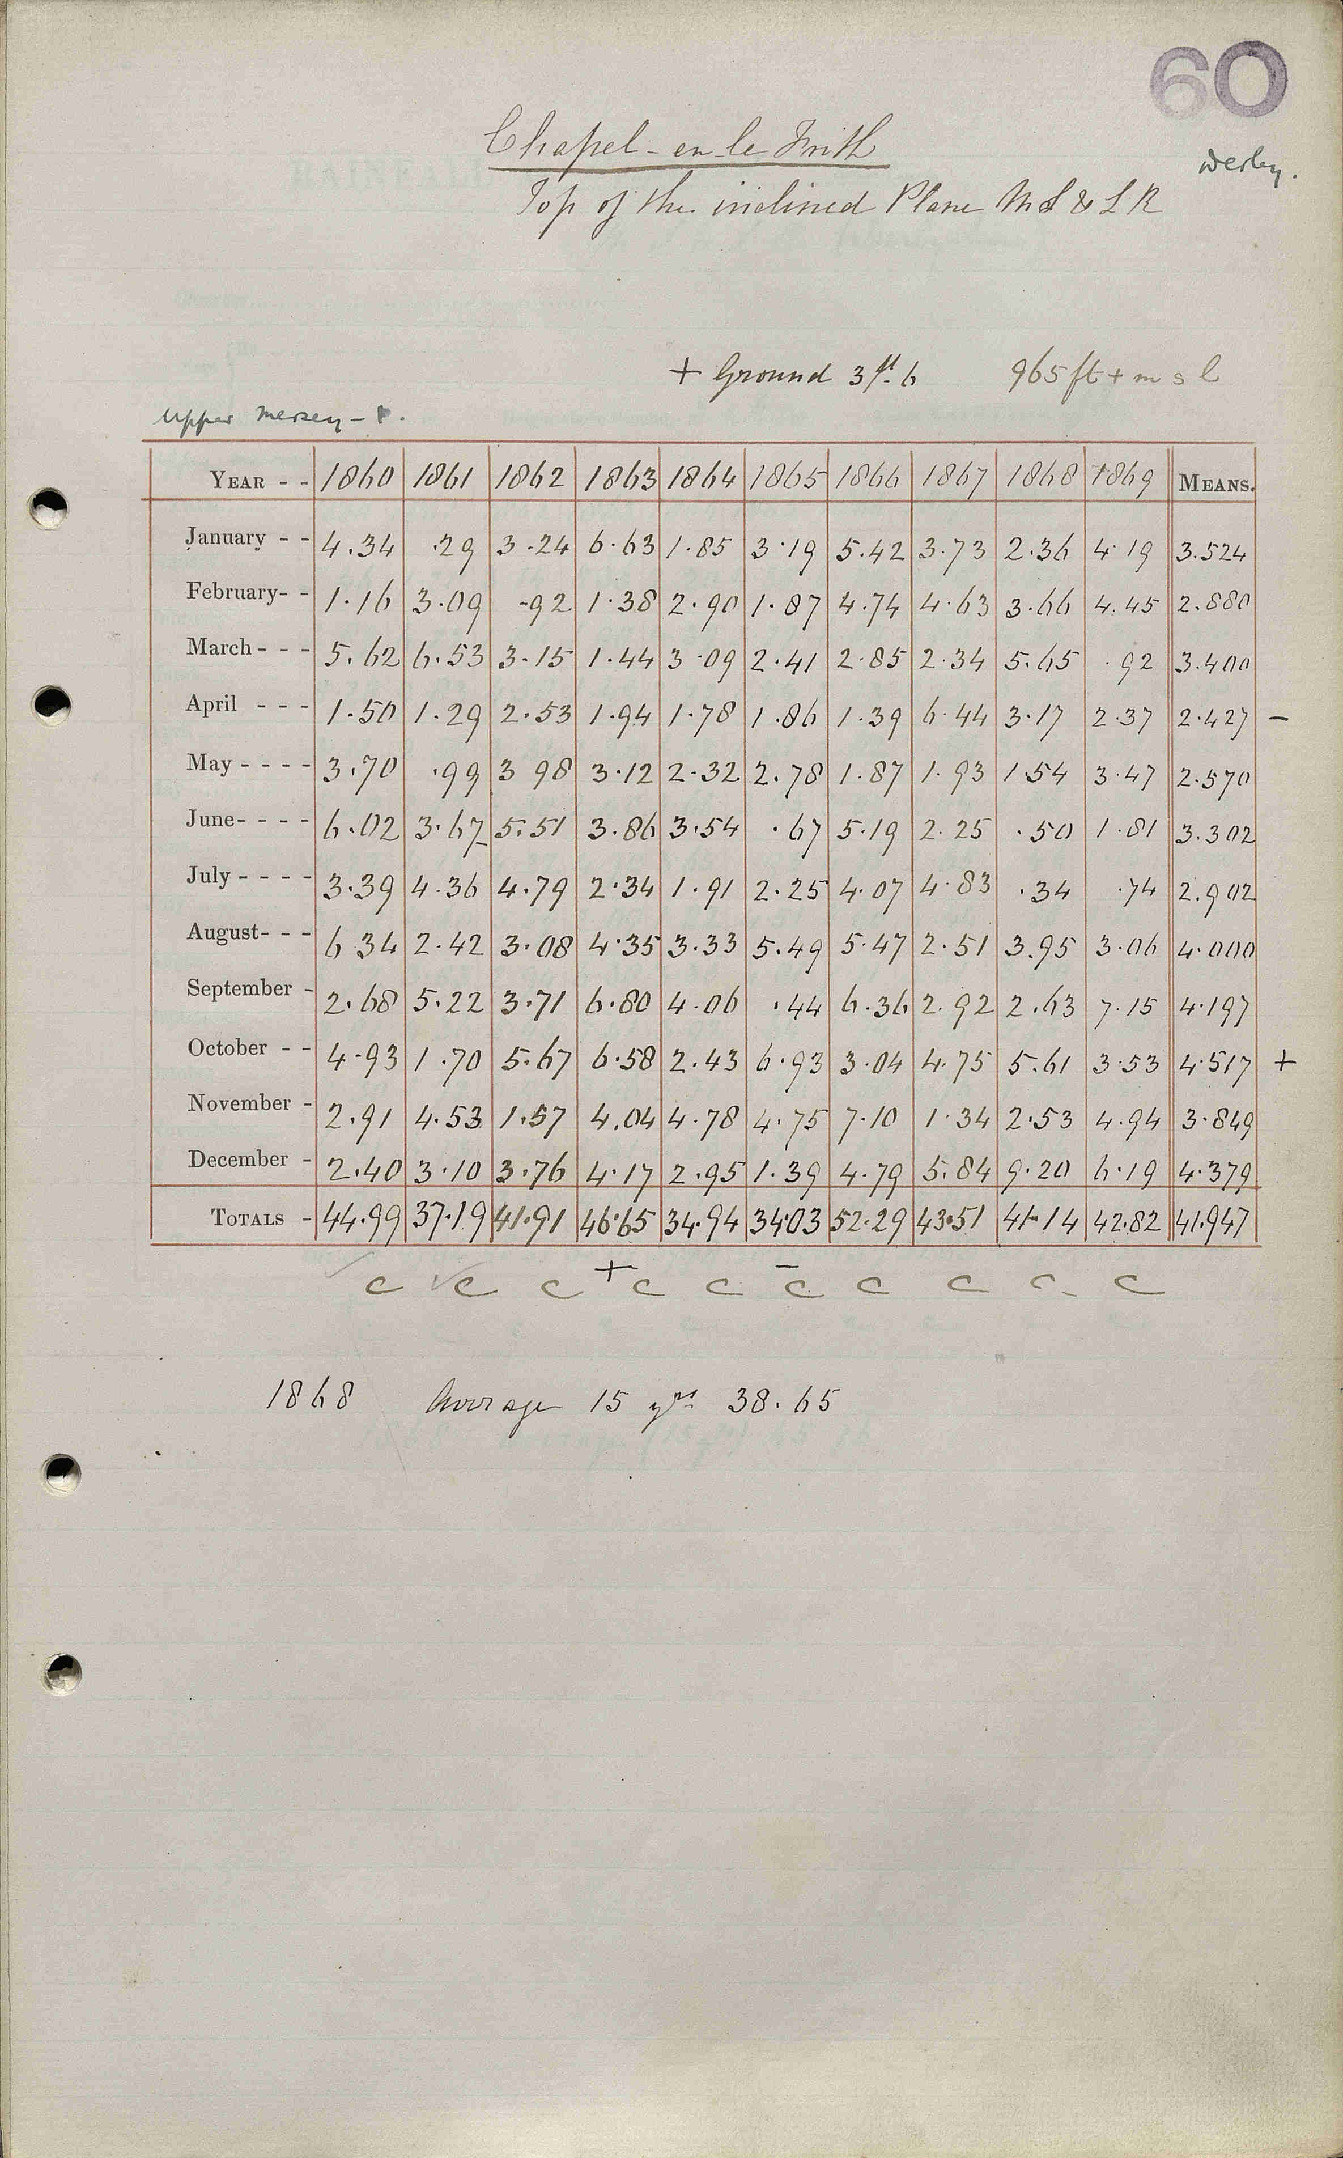 60
Derby.
Chapel-en le Frith
Top of the inclined Plane M S & L R
+ Ground 3 ft. 6 965 ft + m s l
Upper Mersey -
YEAR - - 1860 1861 1862 1863 1864 1865 1866 1867 1868 1869 MEANS.
January - - 4.34 .29 3.24 6.63 1.85 3.19 5.42 3.73 2.36 4.19 3.524
February- - 1.16 3.09 .92 1.38 2.90 1.87 4.74 4.63 3.66 4.45 2.880
March - - - 5.62 6.53 3.15 1.44 3.09 2.41 2.85 2.34 5.65 .92 3.400
April - - - 1.50 1.29 2.53 1.94 1.78 1.86 1.39 6.44 3.17 2.37 2.427 -
May - - - - 3.70 .99 3 98 3.12 2.32 2.78 1.87 1.93 1.54 3.47 2.570
June- - - - 6.02 3.67 5.51 3.86 3.54 .67 5.19 2.25 .50 1.81 3.302
July - - - - 3.39 4.36 4.79 2.34 1.91 2.25 4.07 4.83 .34 .74 2.902
August- - - 6 34 2.42 3.08 4.35 3.33 5.49 5.47 2.51 3.95 3.06 4.000
September - 2.68 5.22 3.71 6.80 4.06 .44 6.36 2.92 2.63 7.15 4.197
October - - 4.93 1.70 5.67 6.58 2.43 6.93 3.04 4.75 5.61 3.53 4.517 +
November - 2.91 4.53 1.57 4.04 4.78 4.75 7.10 1.34 2.53 4.94 3.849
December - 2.40 3.10 3.76 4.17 2.95 1.39 4.79 5.84 9.20 6.19 4.379
TOTALS - 44.99 37.19 41.91 46.65 34.94 34.03 52.29 43.51 41.14 42.82 41.947
+ -
c c c c c c c c c c
1868 Average 15 yrs 38.65